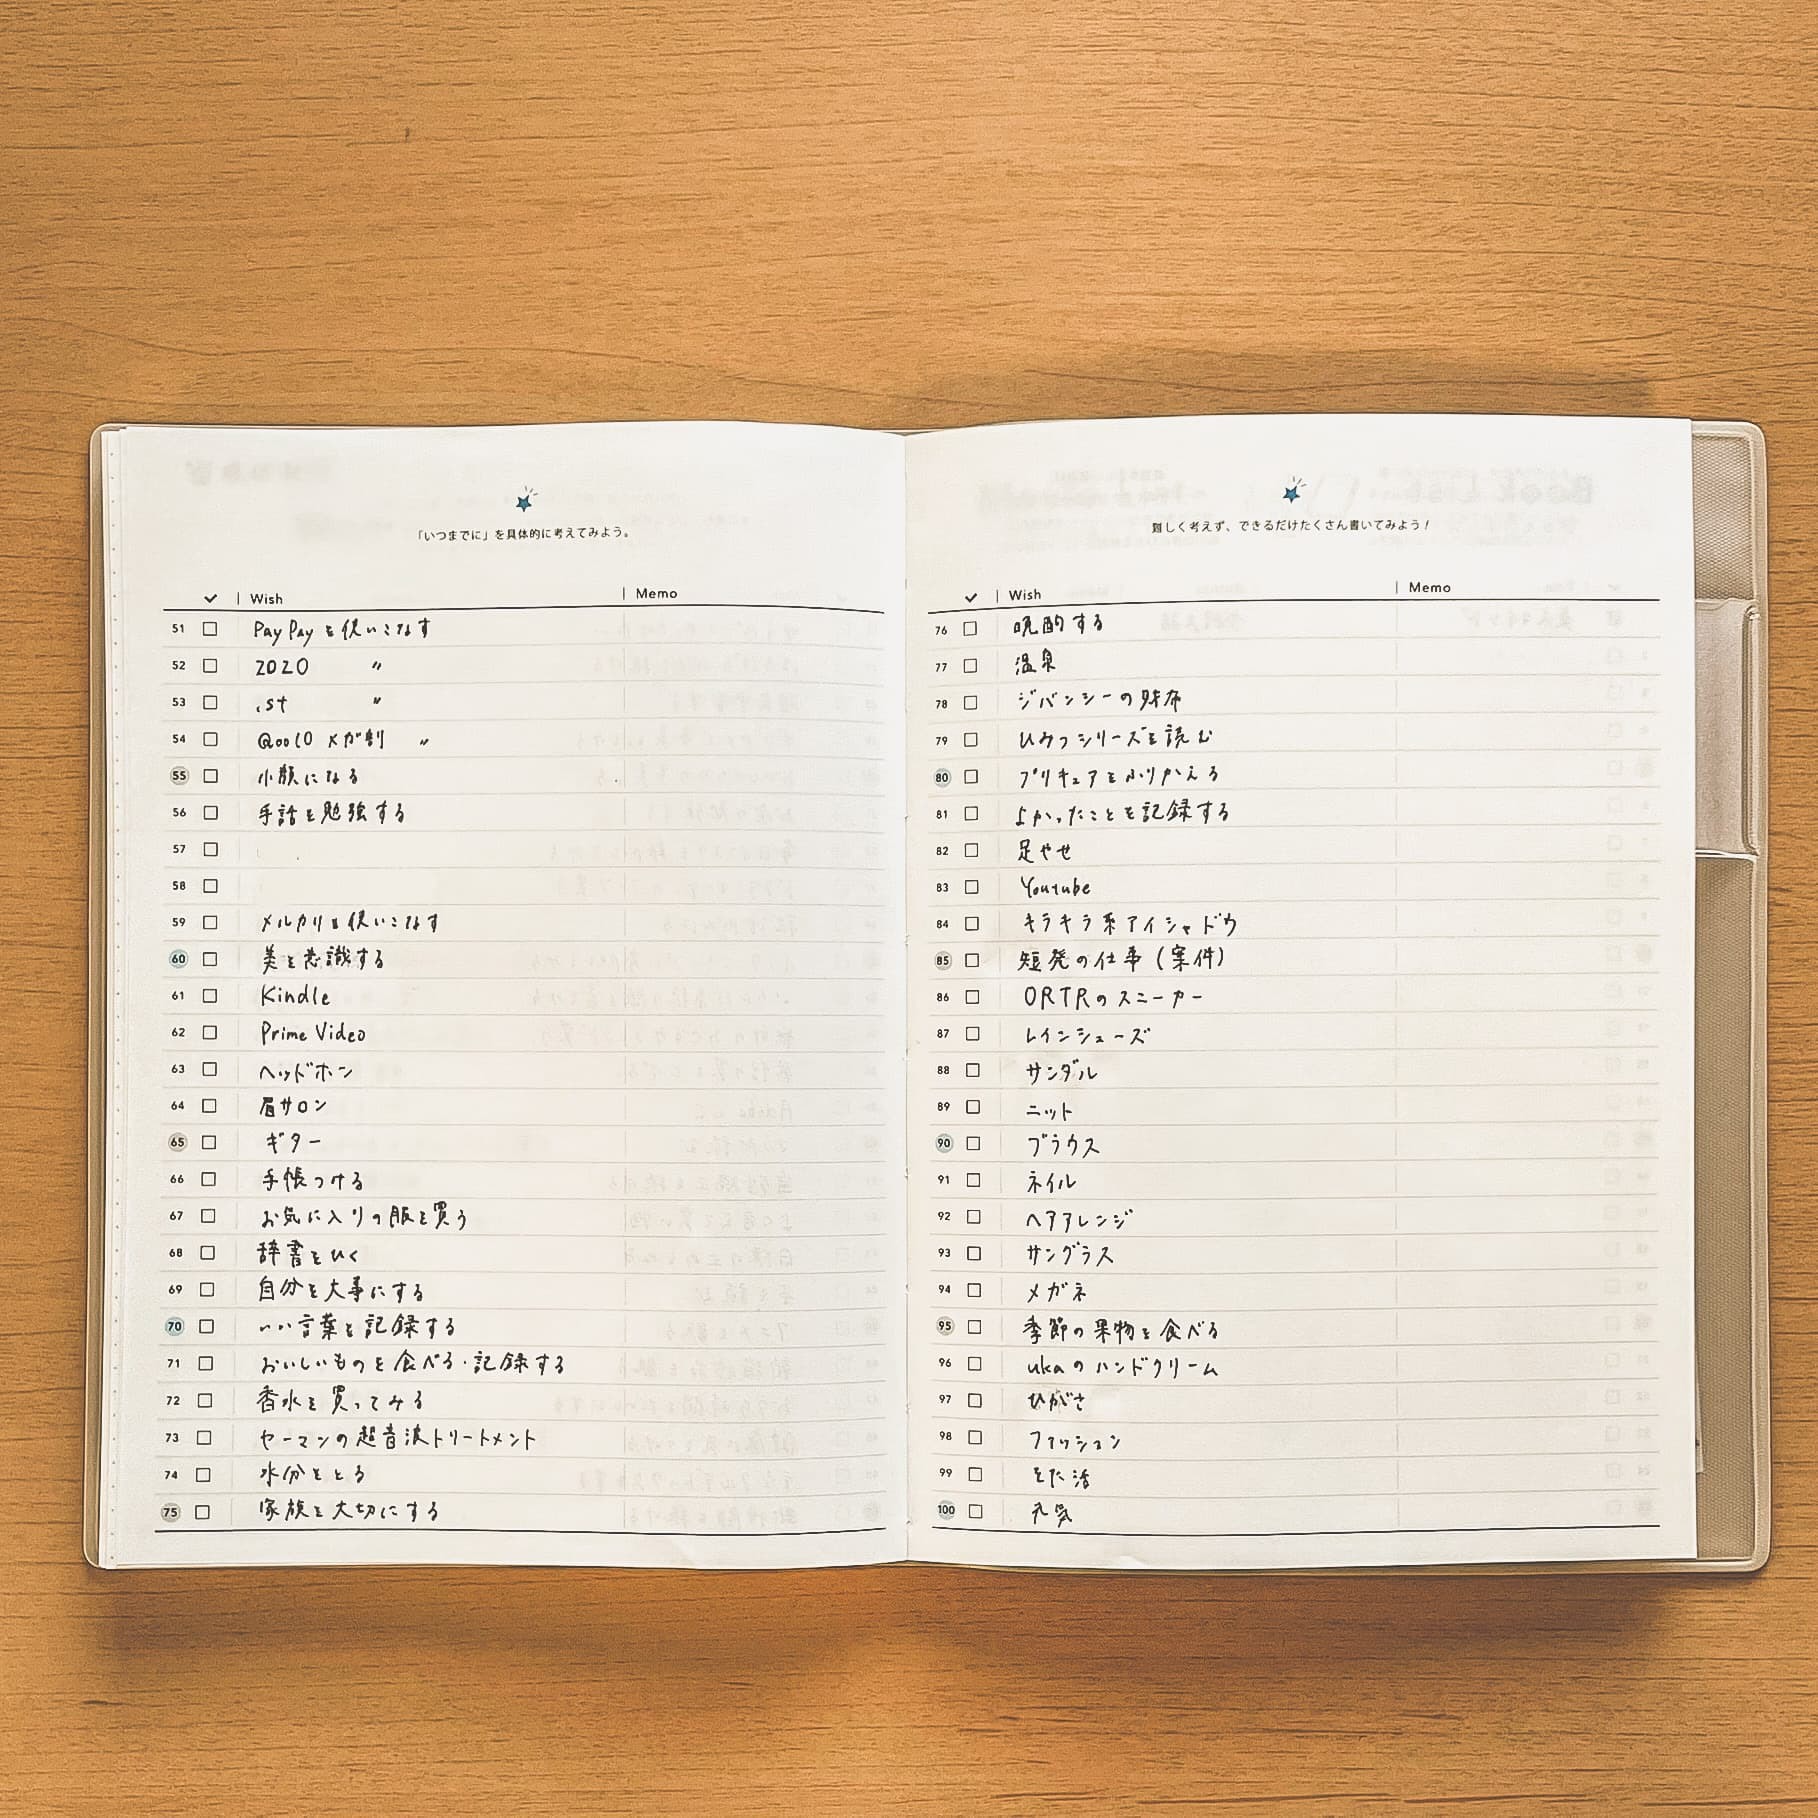 「いつまでに」を具体的に考えてみよう。
✓ Wish Memo
51 PayPayを使いこなす
52 2020 〃
53 .st 〃
54 Qoo10 メガ割 〃
55 小顔になる
56 手話を勉強する
57
58
59 メルカリを使いこなす
60 美を意識する
61 Kindle
62 Prime Video
63 ヘッドホン
64 眉サロン
65 ギター
66 手帳つける
67 お気に入りの服を買う
68 辞書をひく
69 自分を大事にする
70 いい言葉を記録する
71 おいしいものを食べる・記録する
72 香水を買ってみる
73 ヤーマンの超音波トリートメント
74 水分をとる
75 家族を大切にする
難しく考えず、できるだけたくさん書いてみよう！
✓ Wish Memo
76 晩酌する
77 温泉
78 ジバンシーの財布
79 ひみつシリーズを読む
80 プリキュアをふりかえる
81 よかったことを記録する
82 足やせ
83 Youtube
84 キラキラ系アイシャドウ
85 短発の仕事（案件）
86 ORTRのスニーカー
87 レインシューズ
88 サンダル
89 ニット
90 ブラウス
91 ネイル
92 ヘアアレンジ
93 サングラス
94 メガネ
95 季節の果物を食べる
96 ukaのハンドクリーム
97 ひがさ
98 ファッション
99 そた活
100 元気